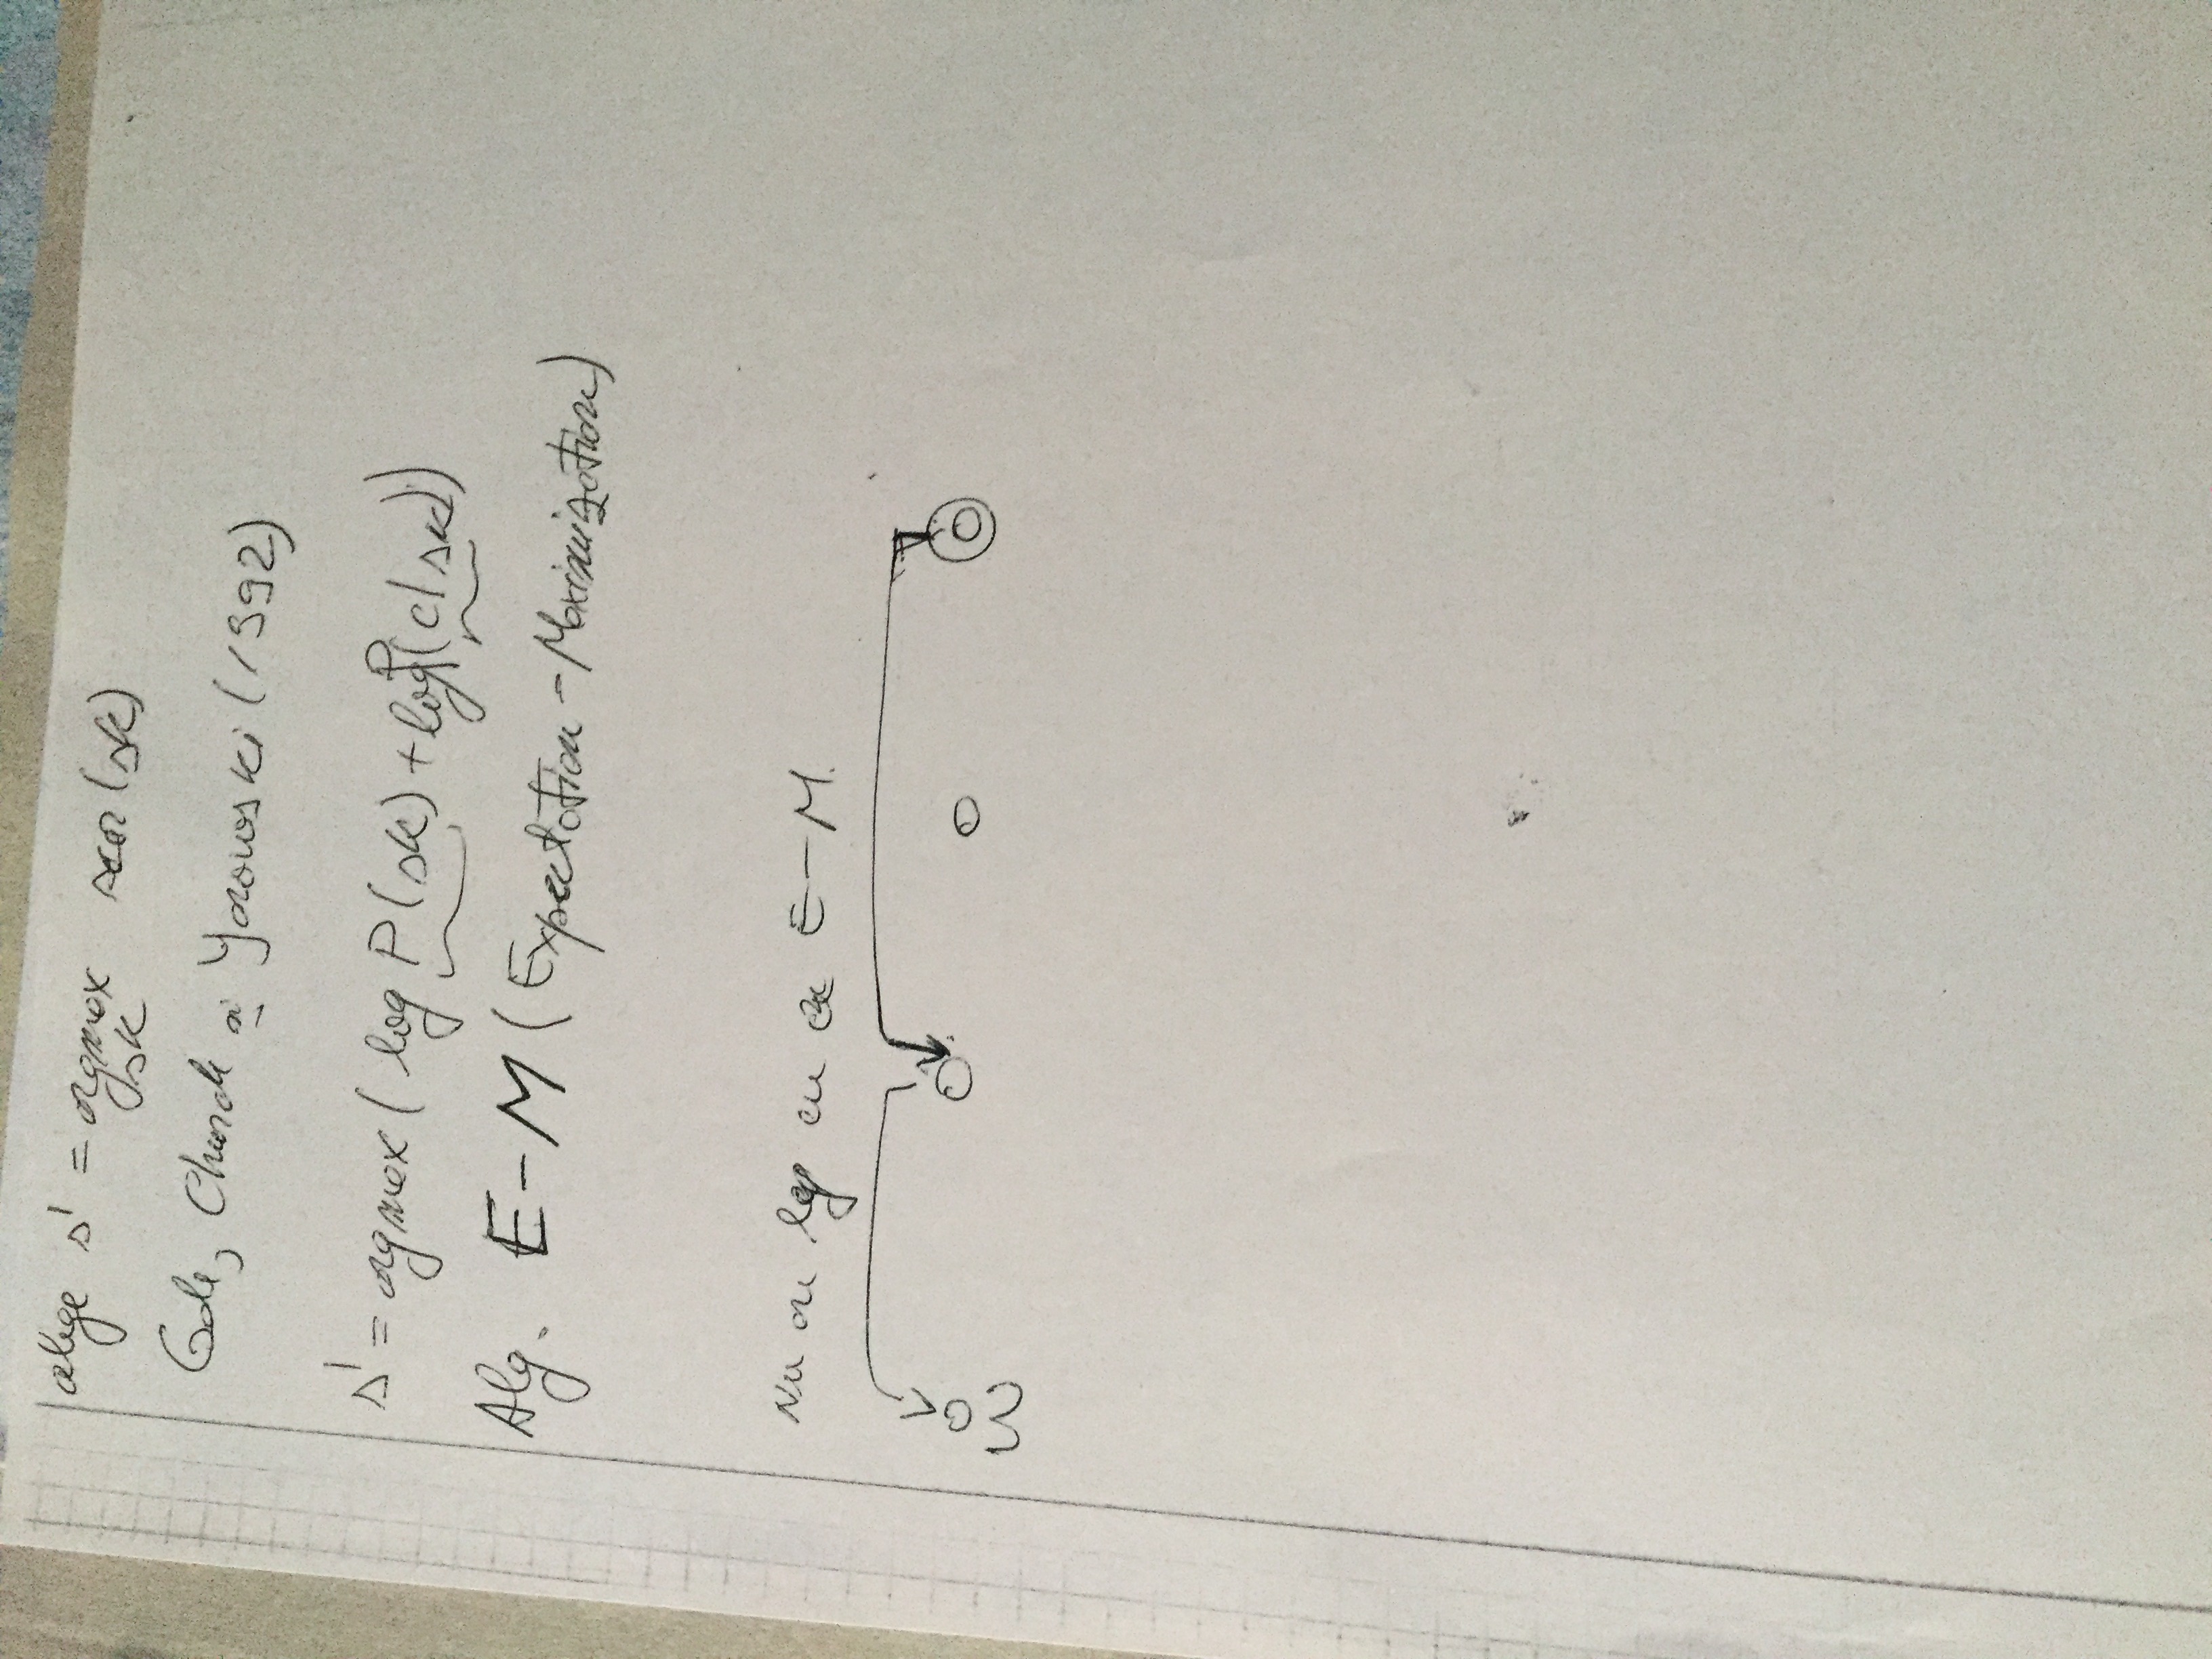 alege s' = argmax scor(sk)
sk
Gale, Church și Yarowski (1992)
s' = argmax (log P(sk) + log P(c|sk))
Alg. E-M (Expectation-Maximization)
Nu au leg cu E-M.
ω